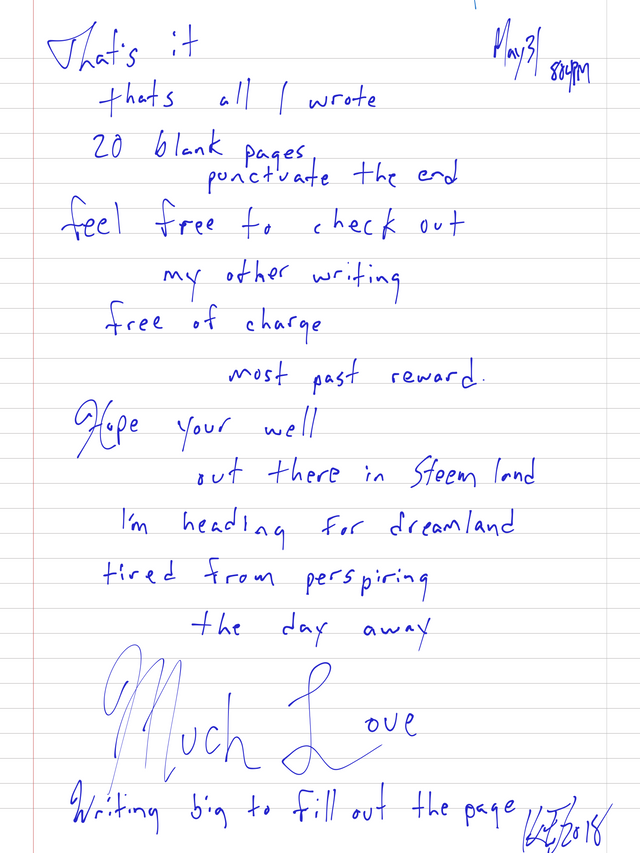 That's it
May 31
8:04PM
thats all I wrote
20 blank pages
punctuate the end
feel free to check out
my other writing
free of charge
most past reward.
Hope your well
out there in Steem land
I'm heading for dreamland
tired from perspiring
the day away
Much Love
Writing big to fill out the page
2018